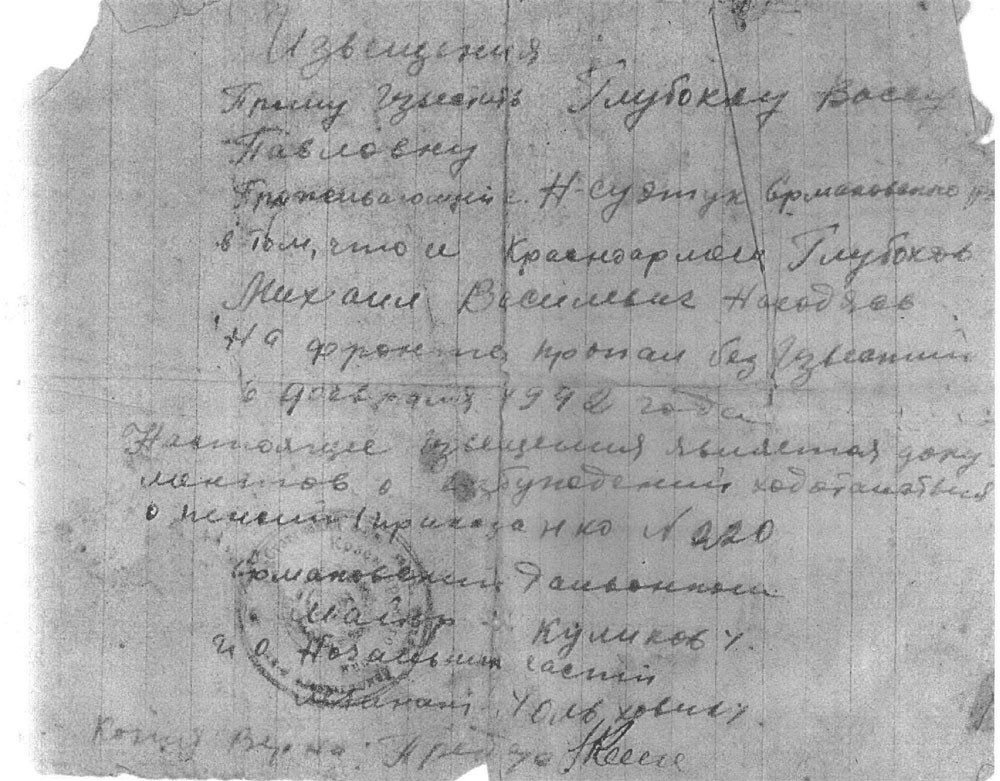 Извещения
Прошу Известить Глубокову
Павловну
Проживающий с. Н-Суэтук Ермаковского
в том, что и Красноармеец Глубоков
Михаил Василевич Находясь
На фронте пропал без Известий
в феврале 1942 года
Настоящее извещения является доку
ментов о возбуждений ходатайства
о пенсии (приказа нко N 220
Ермаковский Райвоенком
Майор Куликов
И О Начальник части
Копия Верна: